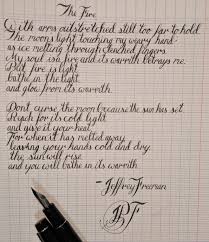 The Fire
With arms outstretched still too far to hold
The moon's light touching my weary hand
as ice melting through clenched fingers.
My soul is a fire and its warmth betrays me.
But fire is light
bathe in the light
and glow from its warmth.
Don't curse the moon because the sun has set
Reach for its cold light
and give it your heat.
For when it has melted away
leaving your hands cold and dry,
the sun will rise
and you will bathe in its warmth.
- Jeffrey Freeman
JF